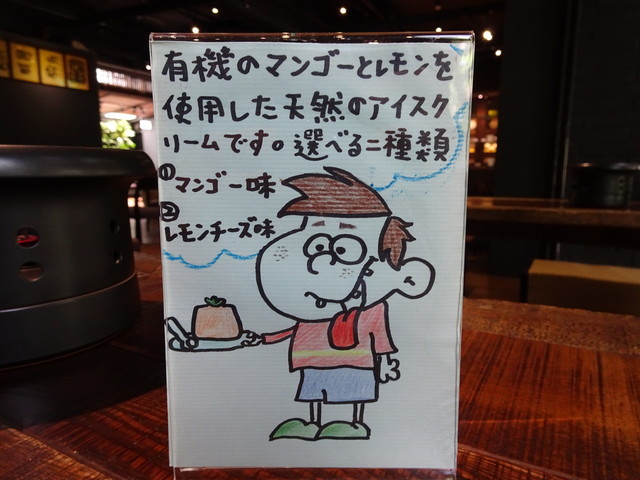 有機のマンゴーとレモンを
使用した天然のアイスク
リームです。選べる二種類
①マンゴー味
②レモンチーズ味